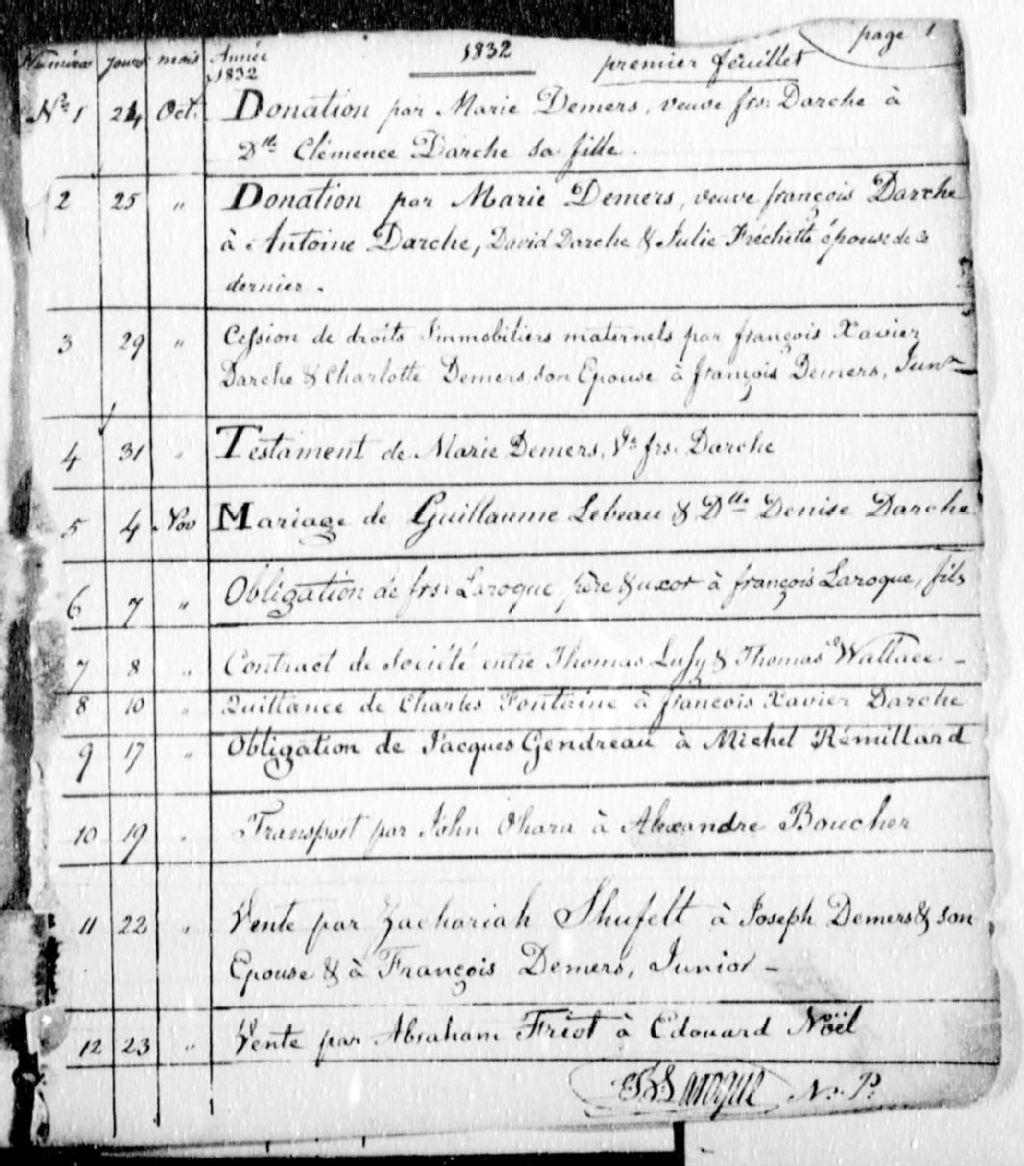 page 1
Numéros jours mois Année 1832 premier feuillet
1832
No 1 24 Oct. Donation par Marie Demers, veuve frs. Darche à
Dlle Clémence Darche sa fille.
2 25 " Donation par Marie Demers, veuve françois Darche
à Antoine Darche, David Darche & Julie Fréchette épouse de ce
dernier.
3 29 " Cession de droits immobiliers maternels par françois Xavier
Darche & Charlotte Demers, son Epouse à françois Demers, Junr
4 31 " Testament de Marie Demers, Ve frs. Darche
5 4 Nov Mariage de Guillaume Lebeau & Dlle Denise Darche
6 7 " Obligation de frs. Laroque, père & uxor à françois Laroque, fils
7 8 " Contract de Société entre Thomas & Thomas Wallace
8 10 " Quittance de Charles Fontaine à francois Xavier Darche
9 17 " Obligation de Jacques Gendreau à Michel Rémillard
10 19 " Transport par John Ohara à Alexandre Boucher
11 22 " Vente par Zachariah Shufelt à Joseph Demers & son
Epouse & à François Demers, Junior
12 23 " Vente par Abraham Friot à Edouard Noël
Laroque N. P.